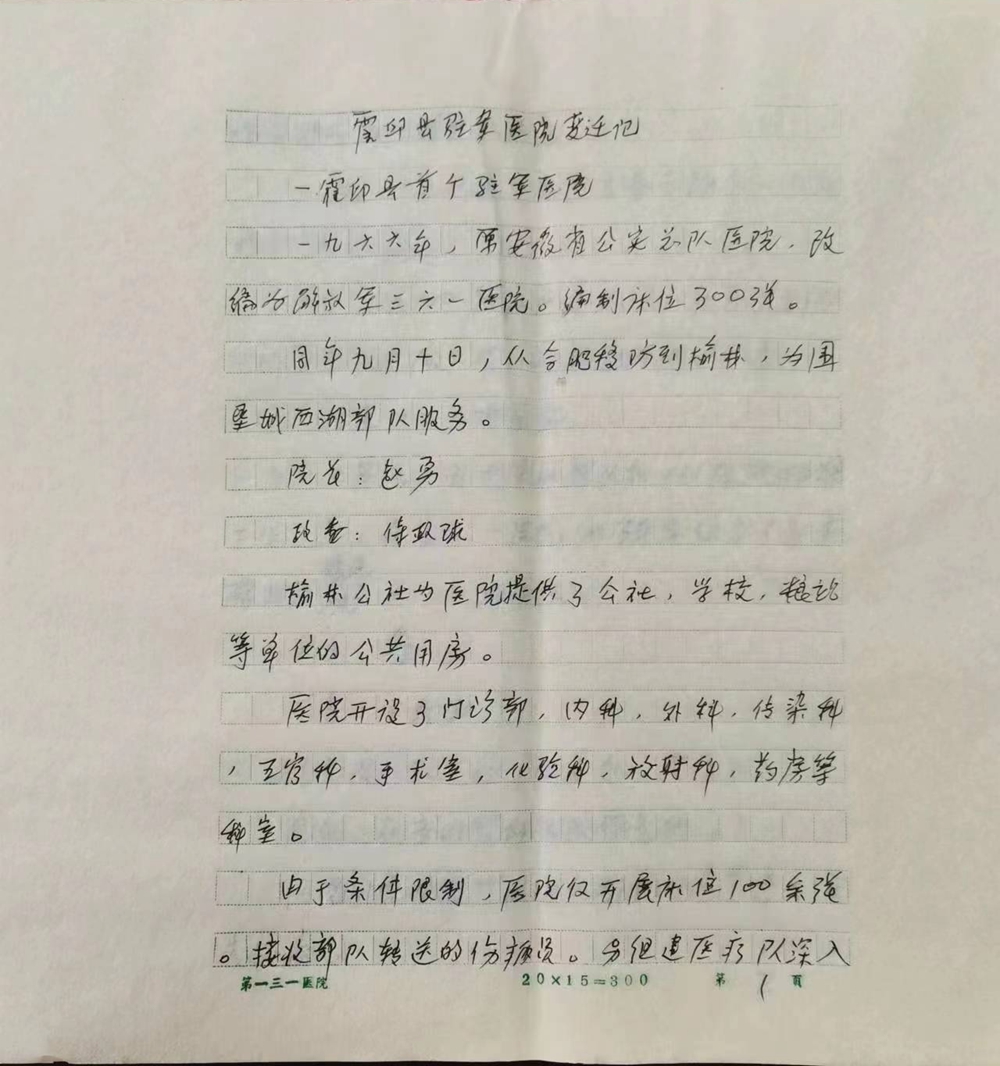 霍邱县驻军医院变迁记
一霍邱县首个驻军医院
一九六六年，原安徽省公安总队医院，改
编为解放军三六一医院。编制床位300张。
同年九月十日，从合肥移防到榆林，为围
垦城西湖部队服务。
院长：赵勇
政委：徐政球
榆林公社为医院提供了公社，学校，粮站
等单位的公共用房。
医院开设了门诊部，内科，外科，传染科
，五官科，手术室，化验科，放射科，药房等
科室。
由于条件限制，医院仅开展床位100余张
。接收部队转送的伤病员。另组建医疗队深入
第一三一医院 20×15=300 第 1 頁